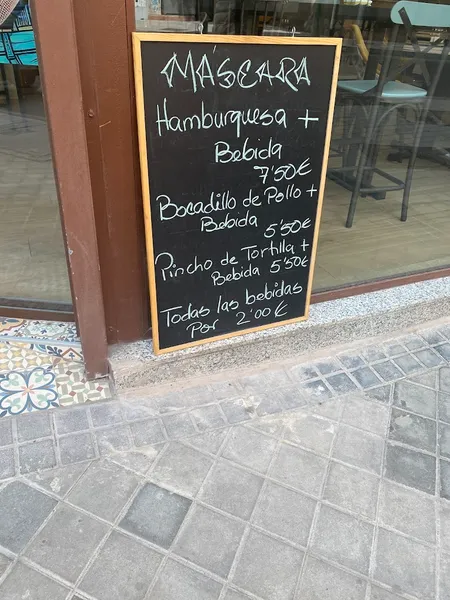 MÁSCARA
Hamburguesa +
Bebida
7'50€
Bocadillo de Pollo +
Bebida
5'50€
Pincho de Tortilla +
Bebida 5'50€
Todas las bebidas
Por 2'00€